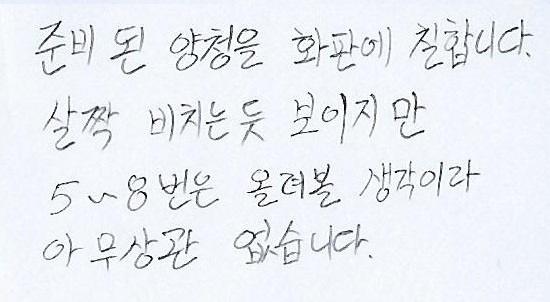 준비 된 양청을 화판에 칠합니다.
살짝 비치는듯 보이지만
5~8번은 올려볼 생각이라
아무상관 없습니다.